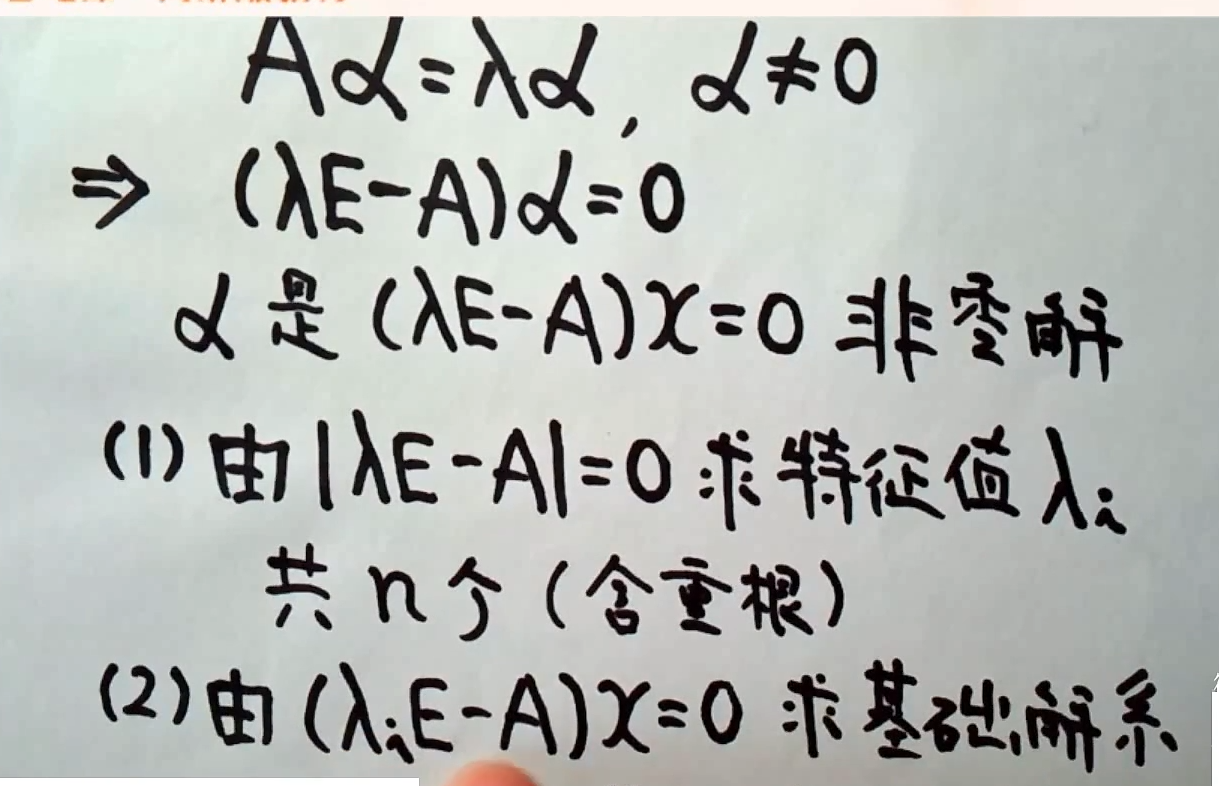 Aα=λα, α≠0
⇒ (λE-A)α=0
α是(λE-A)x=0非零解
(1)由|λE-A|=0求特征值λᵢ
共n个(含重根)
(2)由(λᵢE-A)x=0求基础解系